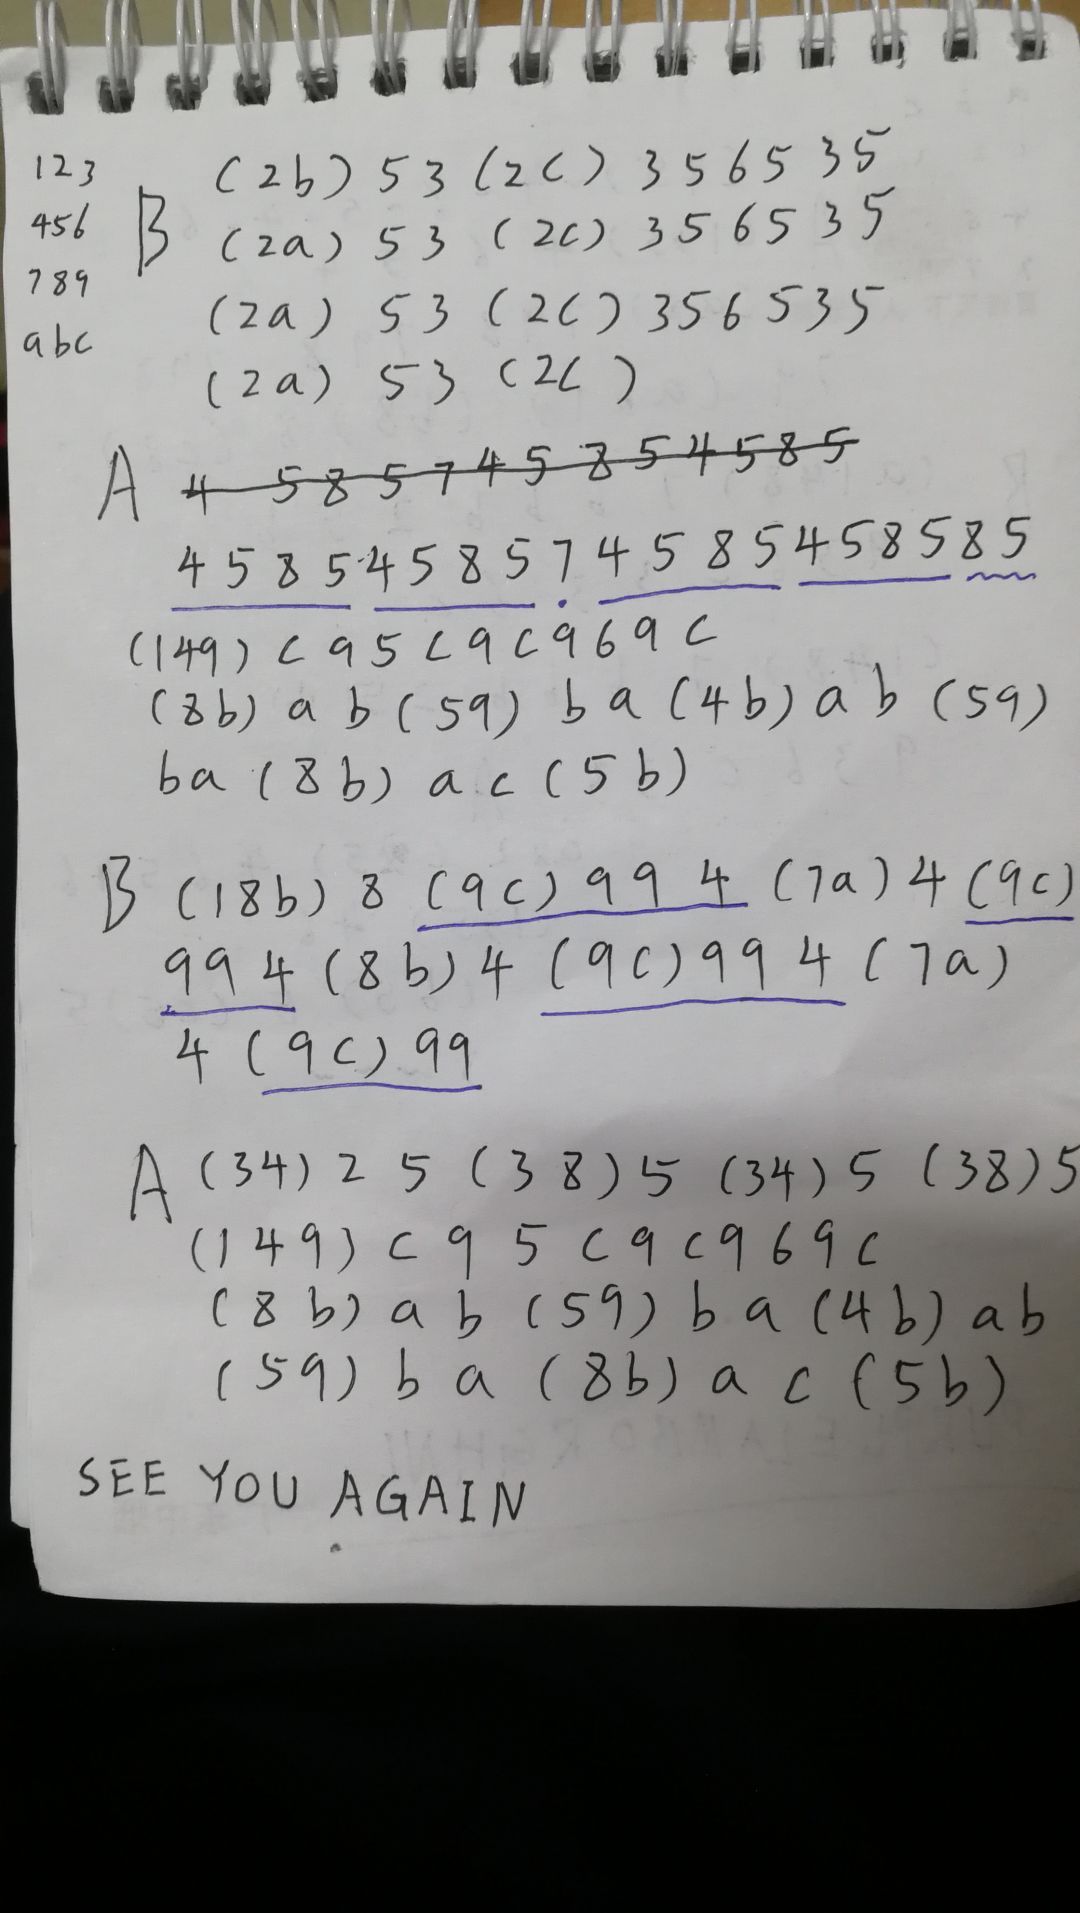 123
456
789
abc
B (2b) 53 (2c) 356535
(2a) 53 (2c) 356535
(2a) 53 (2c) 356535
(2a) 53 (2c)
A 4 585745854585
4585458574585458585
(149) c95c9c969c
(8b) ab (59) ba (4b) ab (59)
ba (8b) ac (5b)
B (18b) 8 (9c) 994 (7a) 4 (9c)
994 (8b) 4 (9c) 994 (7a)
4 (9c) 99
A (34) 25 (38) 5 (34) 5 (38) 5
(149) c95c9c969c
(8b) ab (59) ba (4b) ab
(59) ba (8b) ac (5b)
SEE YOU AGAIN